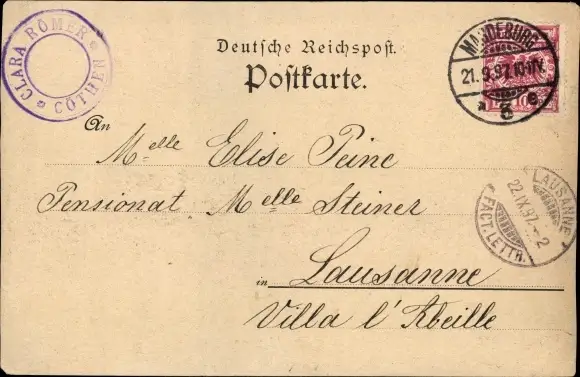 CLARA RÖMER * CÖTHEN *
Deutsche Reichspost.
Postkarte.
MAGDEBURG
21.9.97.10-11V.
* 3 e.
An Melle Elise Peine
Pensionat Melle Steiner
LAUSANNE
22.IX.97.-2
FACT. LETTR.
in Lausanne
Villa l'Abeille